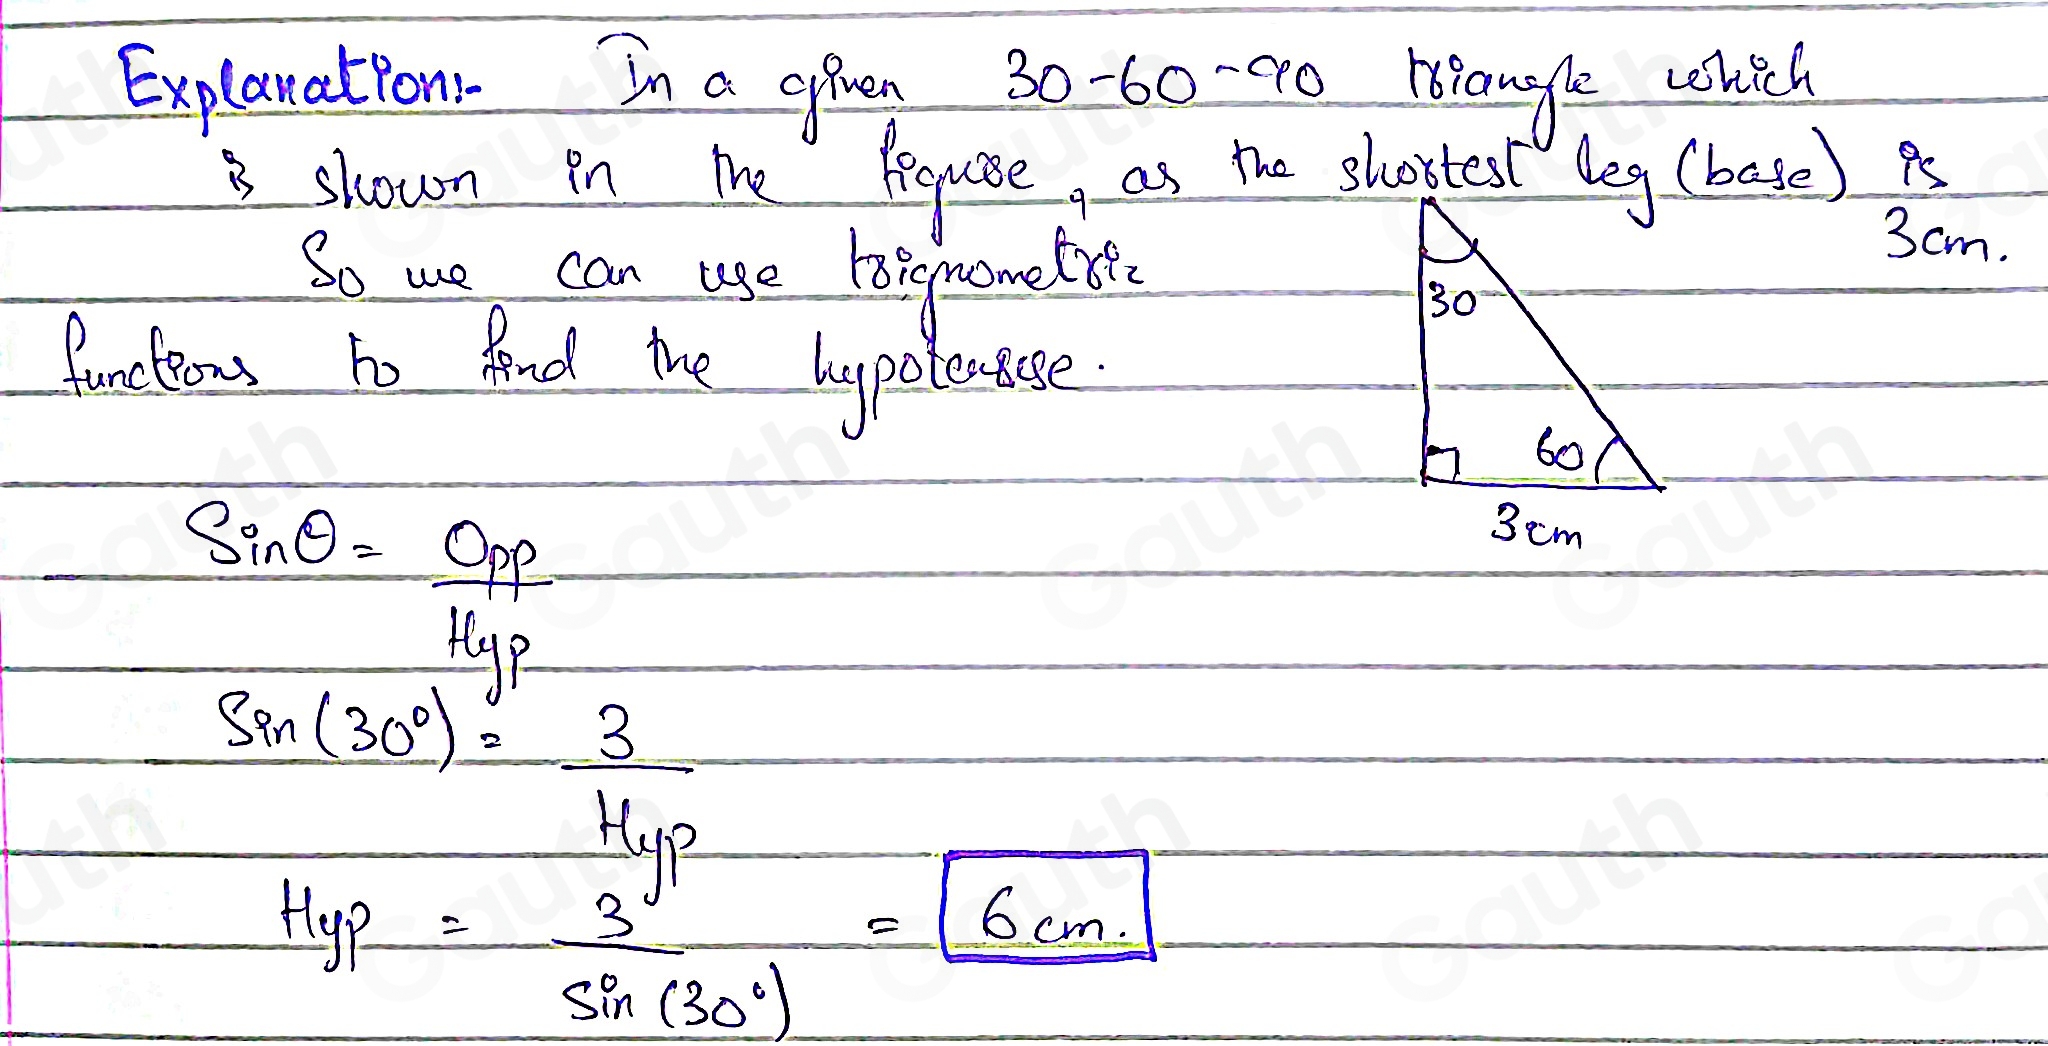 Explanation:- In a given 30-60-90 triangle which
is shown in the figure, as the shortest leg (base) is
3cm.
So we can use trignometric
functions to find the
30
60
3cm
Sinθ = Opp
Hyp
Sin(30°) = 3
Hyp
Hyp = 3 = 6cm.
Sin(30°)
Gauth